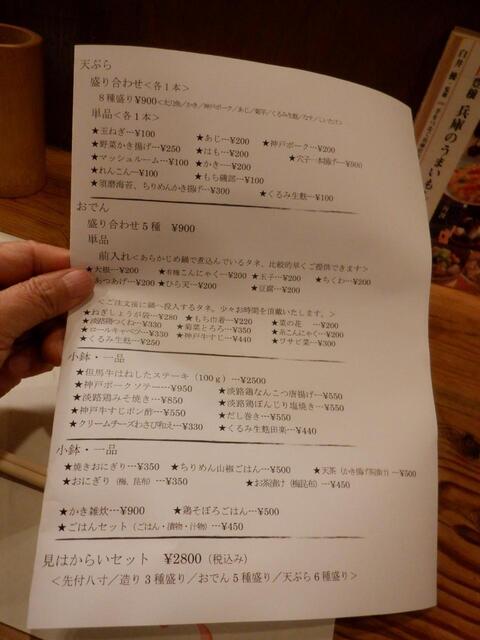 天ぷら
盛り合わせ<各1本>
8種盛り¥900<太刀魚／かき／神戸ポーク／あじ／菊芋／くるみ生麩／なす／しいたけ>
単品<各1本>
★玉ねぎ…¥100 ★あじ…¥200 ★神戸ポーク…¥200
★野菜かき揚げ…¥250 ★はも…¥200 ★穴子一本揚げ…¥900
★マッシュルーム…¥100 ★かき…¥200
★れんこん…¥100 ★もち磯部…¥100
★須磨海苔、ちりめんかき揚げ…¥300 ★くるみ生麩…¥100
おでん
盛り合わせ5種 ¥900
単品
前入れ<あらかじめ鍋で煮込んでいるタネ、比較的早くご提供できます>
★大根…¥200 ★有機こんにゃく…¥200 ★玉子…¥200 ★ちくわ…¥200
★あつあげ…¥200 ★ひら天…¥200 ★豆腐…¥200
<ご注文後に鍋へ投入するタネ。少々お時間を頂戴いたします。>
★ねぎしょうが袋…¥280 ★もち巾着…¥220 ★菜の花 …¥200
★淡路鶏つくね…¥330 ★菊菜とろろ…¥350 ★糸こんにゃく…¥200
★ロールキャベツ…¥330 ★神戸牛すじ…¥440 ★ワサビ菜…¥300
★くるみ生麩…¥250
小鉢・一品
★但馬牛はねしたステーキ（100g）…¥2500
★神戸ポークソテー…¥950 ★淡路鶏なんこつ唐揚げ…¥550
★淡路鶏みそ焼き…¥850 ★淡路鶏ぼんじり塩焼き…¥550
★神戸牛すじポン酢…¥550 ★だし巻き…¥550
★クリームチーズわさび和え…¥330 ★くるみ生麩田楽…¥440
小鉢・一品
★焼きおにぎり…¥350 ★ちりめん山椒ごはん…¥500 ★天茶（かき揚げ茶漬け）…¥500
★おにぎり（梅、昆布）…¥350 ★お茶漬け（梅昆布）…¥450
★かき雑炊…¥900 ★鶏そぼろごはん…¥500
★ごはんセット（ごはん・漬物・汁物）…¥450
見はからいセット ¥2800（税込み）
<先付八寸／造り3種盛り／おでん5種盛り／天ぷら6種盛り>
兵庫のうまいも